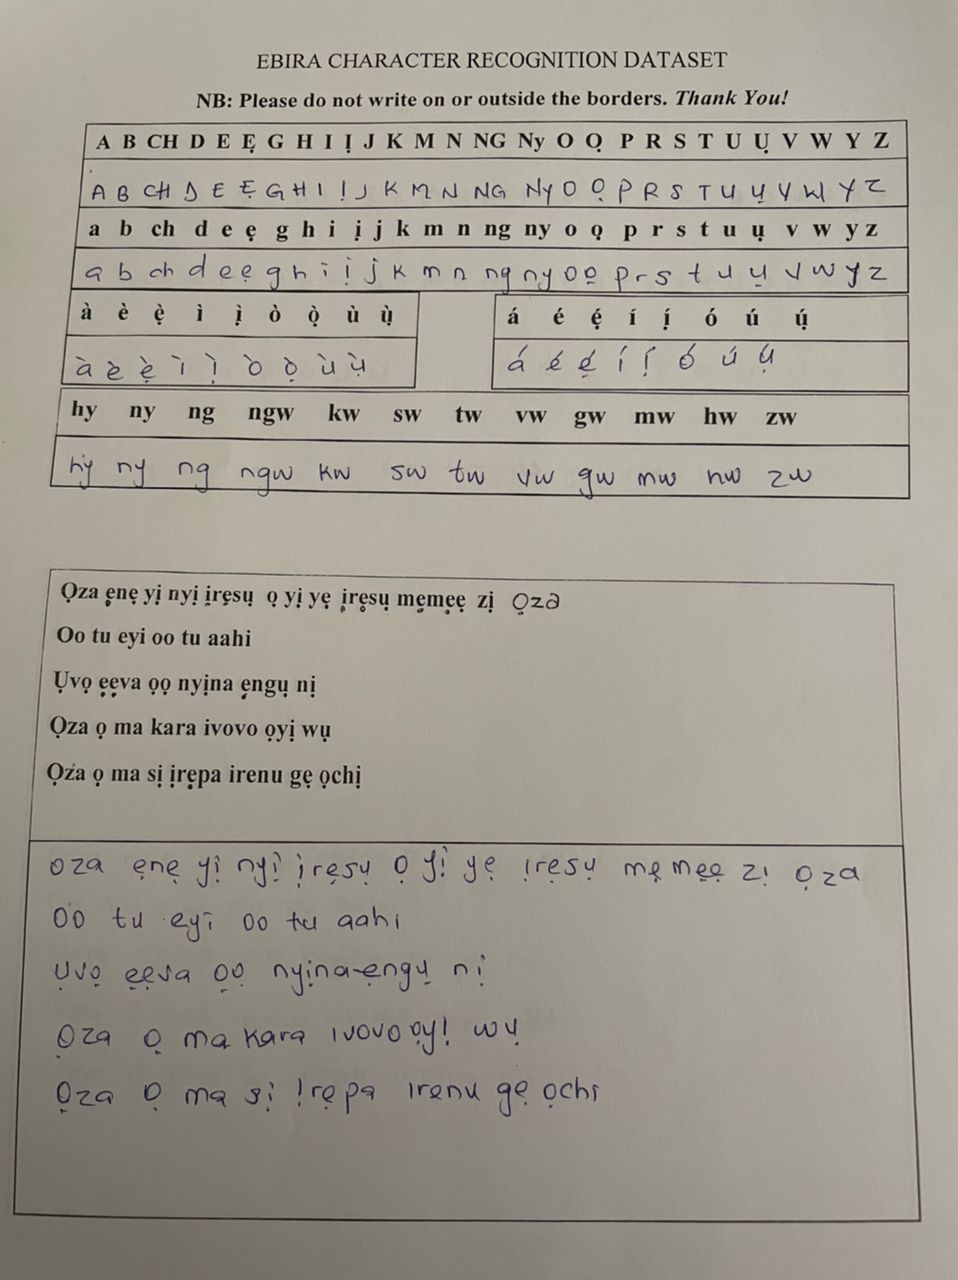 EBIRA CHARACTER RECOGNITION DATASET
NB: Please do not write on or outside the borders. Thank You!
A B CH D E Ẹ G H I Ị J K M N NG Ny O Ọ P R S T U Ụ V W Y Z
A B CH D E Ẹ G H I Ị J K M N NG Ny O Ọ P R S T U Ụ V W Y Z
a b ch d e ẹ g h i ị j k m n ng ny o ọ p r s t u ụ v w y z
a b ch d e ẹ g h i ị j k m n ng ny o ọ p r s t u ụ v w y z
à è ẹ̀ ì ị̀ ò ọ̀ ù ụ̀
à è ẹ̀ ì ị̀ ò ọ̀ ù ụ̀
á é ẹ́ í ị́ ó ú ụ́
á é ẹ́ í ị́ ó ú ụ́
hy ny ng ngw kw sw tw vw gw mw hw zw
hy ny ng ngw kw sw tw vw gw mw hw zw
Ọza ẹnẹ yị nyị ịrẹsụ ọ yị yẹ ịrẹsụ mẹmẹẹ zị Ọza
Oo tu eyi oo tu aahi
Ụvọ ẹẹva ọọ nyịna ẹngụ nị
Ọza ọ ma kara ivovo ọyị wụ
Ọza ọ ma sị ịrẹpa irenu gẹ ọchị
Oza ẹnẹ yị nyị ịrẹsụ Ọ yị yẹ ịrẹsụ mẹmẹẹ zị Ọza
Oo tu eyi oo tu aahi
Ụvọ ẹẹva ọọ nyịna-ẹngụ nị
Ọza ọ ma kara ivovo ọyị wụ
Ọza ọ ma sị ịrẹpa irenu gẹ ọchi